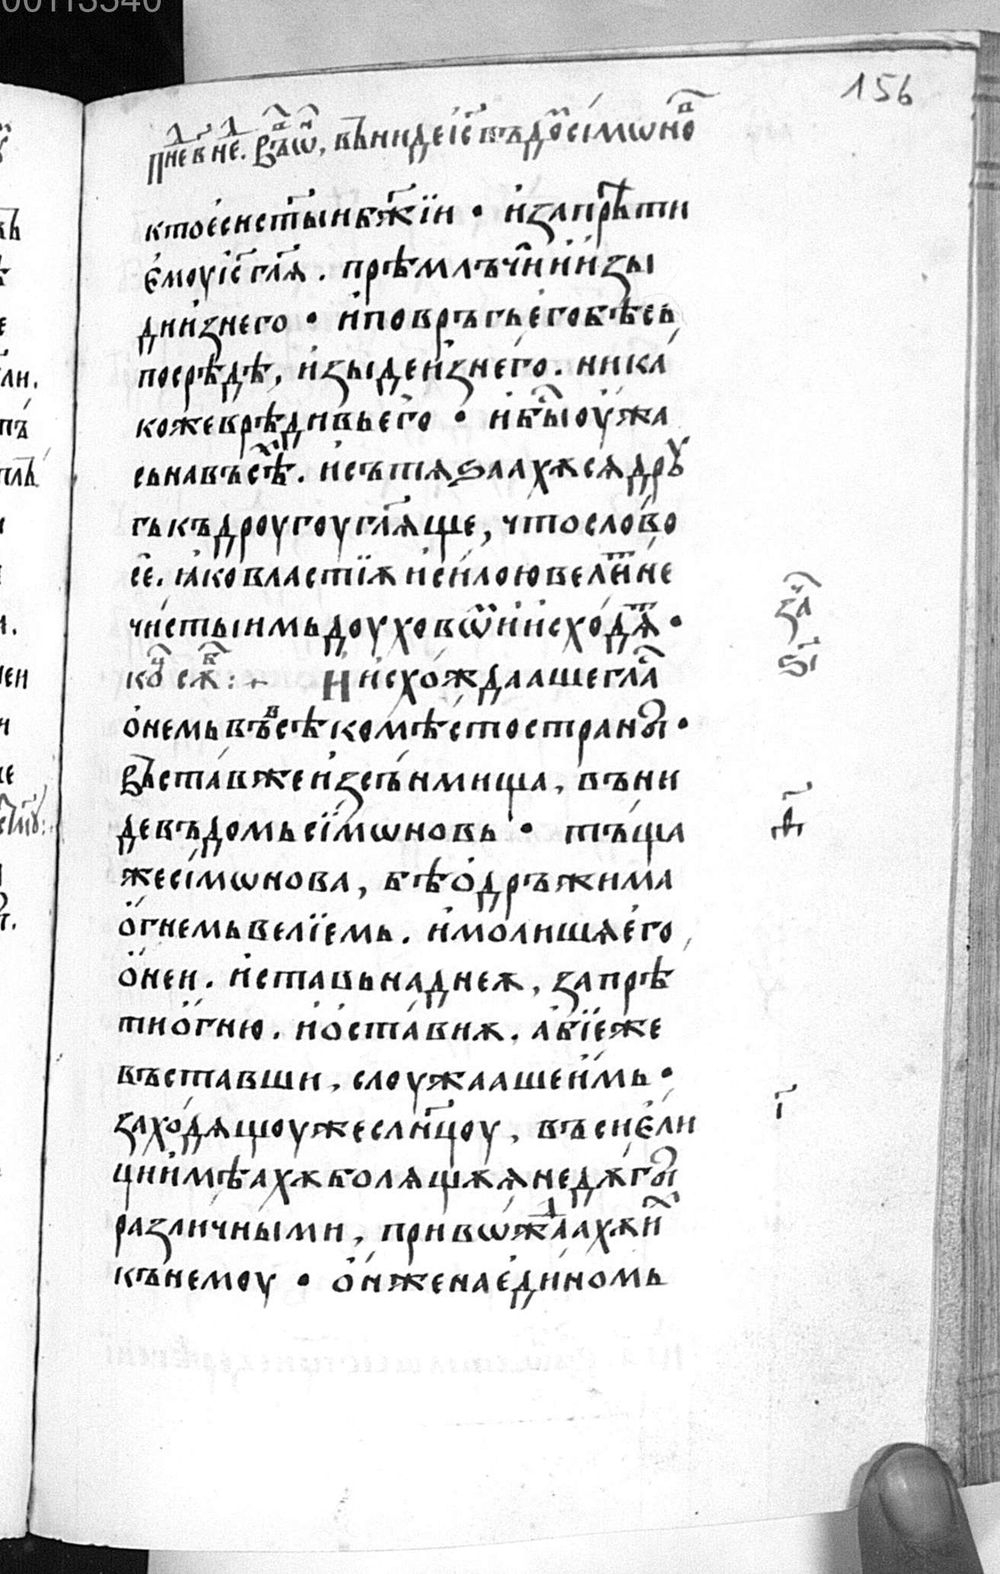 00113540
156
пнⷣе в҃ неⷣ. Въ ѡⷩ҇, вънидеі҆с҃ въдоⷨсі́мѡноⷡ
ктоесисты҃ибж҃їи • и҆запрѣ́ти
є҆моуі҆с҃ гл҃ѧ . прѣмлъчи̑и҆и҆зы
дии҆знего • и҆повръгье҆гобѣ́съ
посрѣ́дѣ, и҆зыдеи҆знего. ника́
кожеврѣдивье҆го • и҆бы́оу҆жа
сьнавъсѣⷯ. и҆сътѧѕаахѫсѧдрѹ
гькъдроугоугл҃ѧще, чтослово
се҆. ꙗ҆ковластїѫи҆си́лоювели́тнⷨе
чи́стыимьдоуховѡⷨи҆и҆схо́дѧⷮ •
коⷰ҇ сѫⷠ҇ : ~ И҆и҆схо́ждаашегла́
ѡ҆немьвъⷡ҇сѣкомѣстостраны •
Въста́вжеи҆зсъ́нмища, въни
девъдомьсі́мѡновь • тъ́ща
жесі́мѡнова, бѣо҆дръжима
о҆гнемьвелїемь. и҆молишѧе҆го,
о҆неи. и҆ставьнаднеѫ, запрѣ
тио҆гню. и҆о҆ста́виѫ. а҆бїеже
въставши, слоужаашеи҆мь •
захо́дѧщоужеслн҃цоу, въсиє҆ли
ции҆мѣахѫболѧщѫѧнедѫгы
разли́чными, привѡжⷣаахѫи҆ⷯ
къ́немоу • о҆́нженае҆ди́номь
за҄ⷱ
ѕ҃і
д҃
г҃